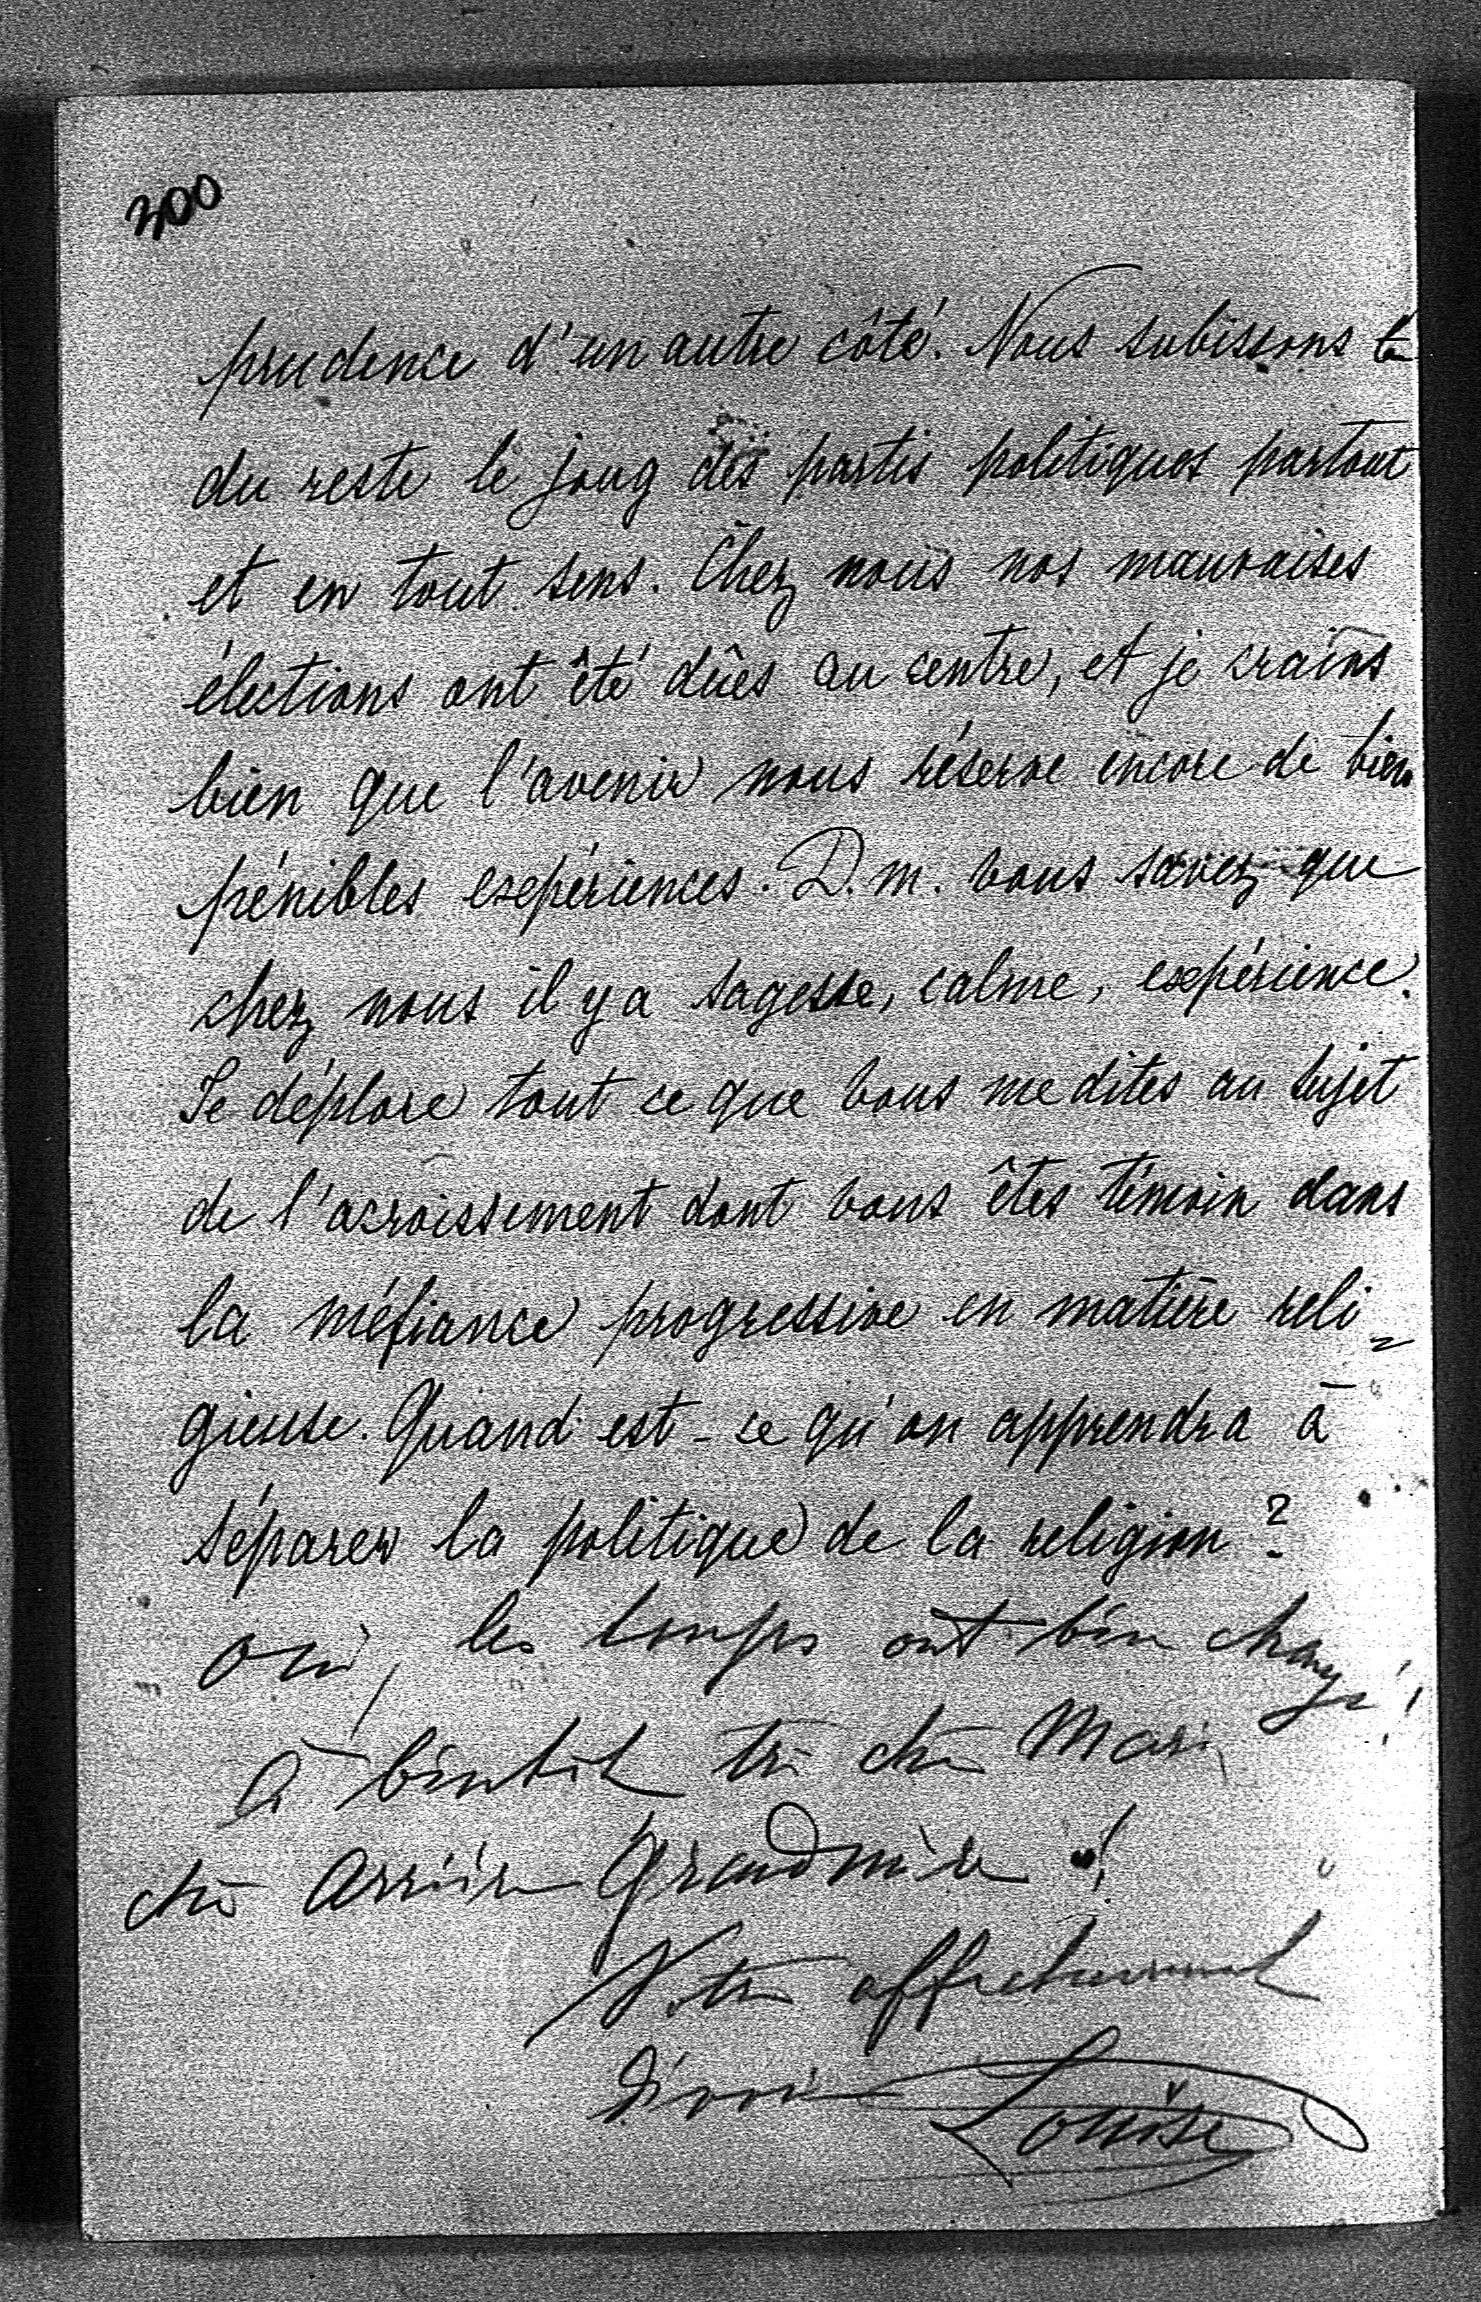 300
prudence d'un autre côté. Nous subissons
du reste le joug des partis politiques partout
et en tout sens. Chez nous nos mauvaises
élections ont êté dûes au centre, et je crains
bien que l'avenir nous réserve encore de bien
pénibles expériences. D. m. vous savez que
chez nous il y a sagesse, calme, expérience.
Je déplore tout ce que vous me dites au sujet
de l'acroissement dont vous êtes témoin dans
la méfiance progressive en matière reli-
gieuse. Quand est-ce qu'on apprendra à
séparer la politique de la religion?
oui, les temps ont bien changé!
à bientôt très chère Marie
chère Arrière Grandmère!
Votre affectueusement
dévouée Louise